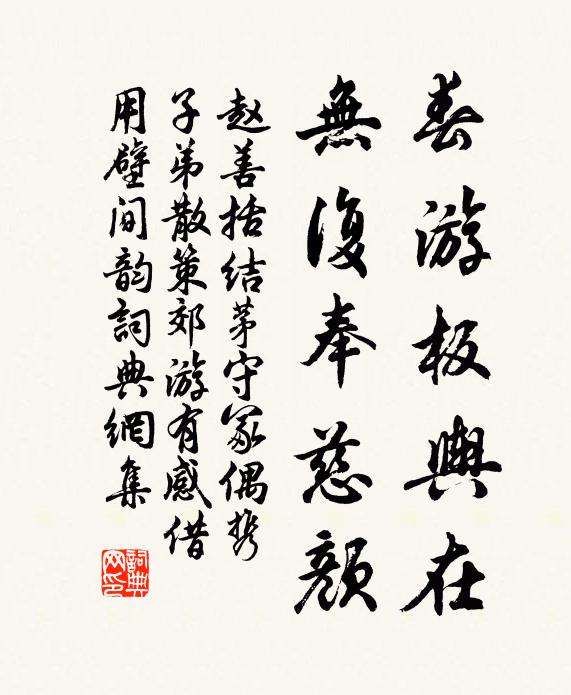 春游板輿在
無復奉慈顏
赵善括结茅守冢偶携
子弟散策郊游有感借
用壁间韵詞典網集
詞典
网印